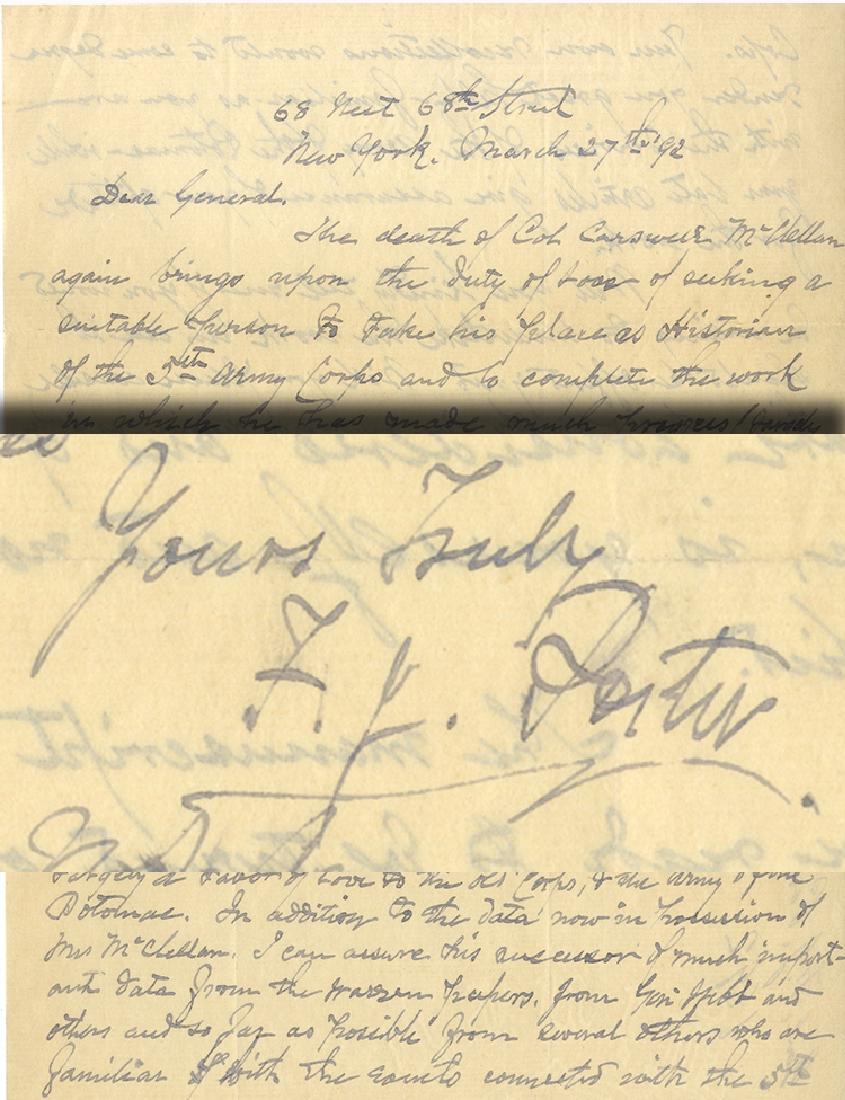 68 West 68th Street
New York. March 27th '92
Dear General.
The death of Col Carswell McClellan
again brings upon the duty of love of seeking a
suitable person to take his place as Historian
of the 5th Army Corps and to complete the work
in which he has made much progress
Yours Truly
F. J. Porter
largely a favor of love to the old Corps, & the Army of the
Potomac. In addition to the data now in possession of
Mrs McClellan. I can assure his successor of much import-
ant data from the Warren papers, from Gen Webb and
others and so far as possible from several others who are
familiar with the events connected with the 5th